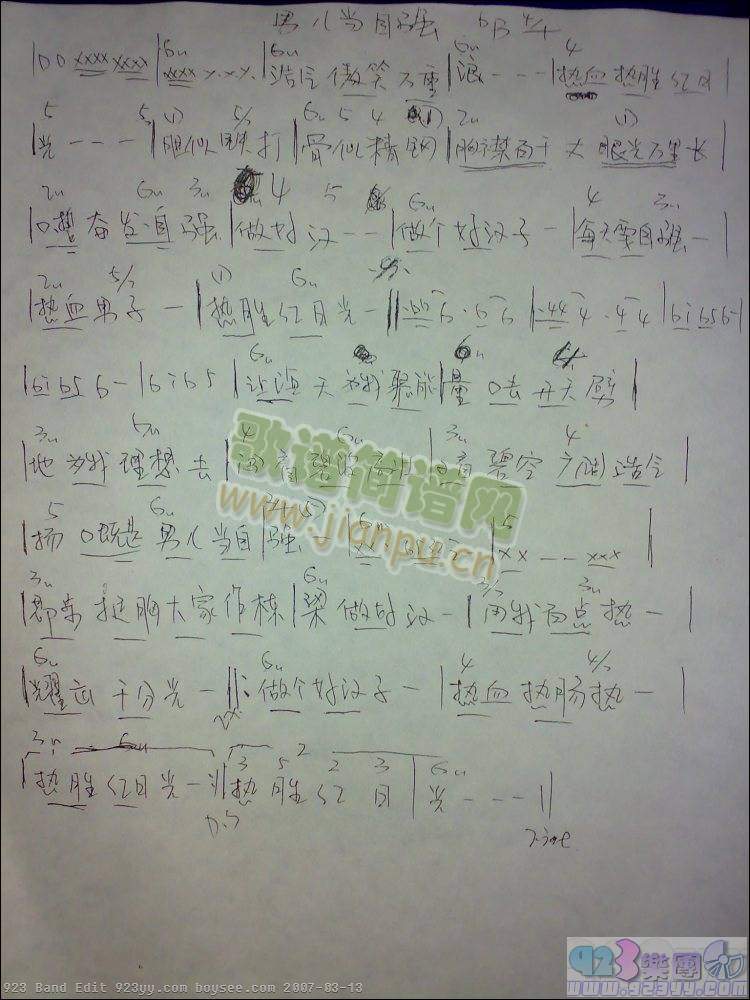 男儿当自强 bB 4/4
|00 xxxx xxxx| 6m xxxx x.x.x. |6m 浩气傲笑万重 |5m 浪 - - - |4 热血热胜红日|
|5 光 - - - 5 |(1) 胆似铁打 5/7 |6m 骨似精钢 5 4 (1) |2m 胸襟百千丈 眼光万里长 (1) |
|2m 口哩奋发自强 6m 3m |4 做好汉 - - 5 |6m 做个好汉子 - |4 每天要自强 - 3m |
|2m 热血男子 - 5/7 |(1) 热胜红日光 - 6m 4/5 ||.66 6 . 6 6 |.44 4 . 4 4 |6 i 65 6-|
|6 i 65 6 - |6 i 6 5 |6m 让海天为我聚能|量 口去开天辟|
|3m 地 为我理想去 5m |4 |3m 看碧空广阔浩气 4 |
|5 扬 口既是男儿当自强 - 6m |5 xx . . - - xxx |
|3m 昂步挺胸大家作栋|6m 梁 做好汉 - |用我百点热 - 3m |
|6m 耀出千分光 - ||: 6m 做个好汉子 - |4 热血热肠热 - 4/5 |
|3m 热胜红日光 - 6m :||3 5 2 2 3 热胜红日|6m 光 - - - - ||
D.S
Fine
歌谱简谱网
www.jianpu.cn
923樂團
www.923yy.com
923 Band Edit 923yy.com boysee.com 2007-03-13